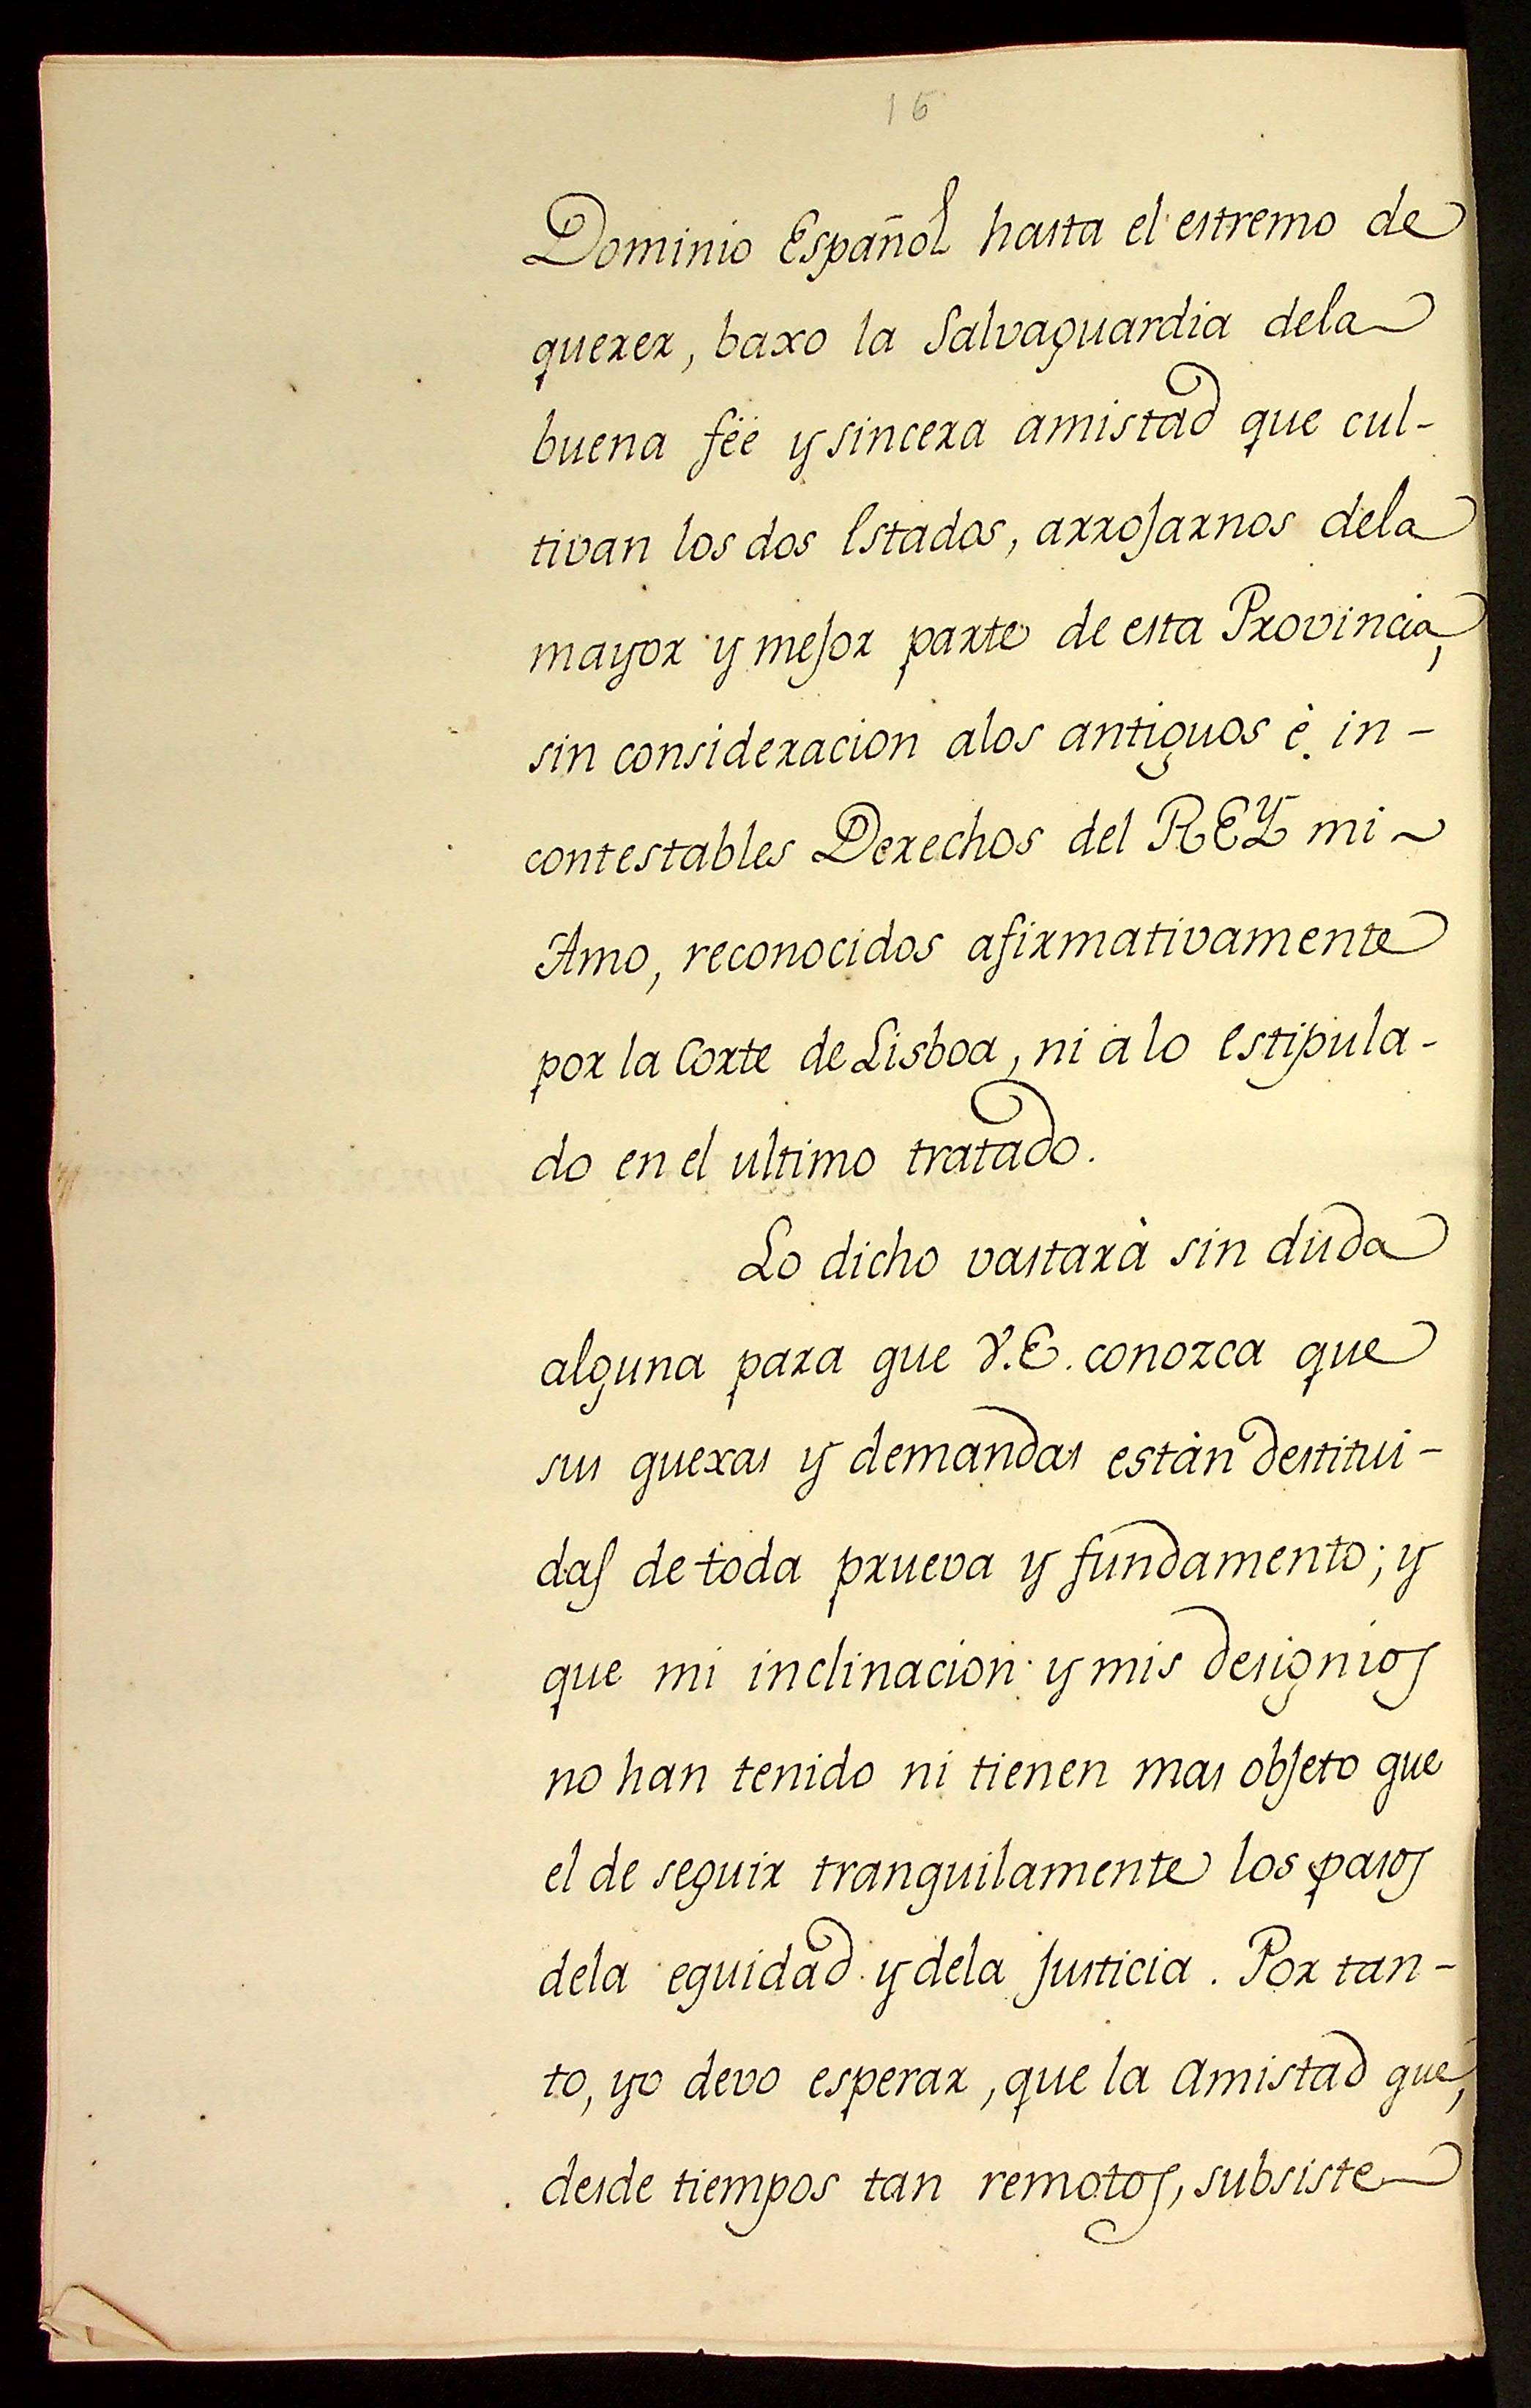 16
Dominio Español hasta el estremo de
querer, baxo la Salvaguardia dela
buena fée y sincera amistad que cul-
tivan los dos Estados, arrojarnos dela
mayor y mejor parte de esta Provincia,
sin consideracion alos antiguos è in-
contestables Derechos del REY mi
Amo, reconocidos afirmativamente
por la Corte de Lisboa, ni a lo estipula-
do en el ultimo tratado.
Lo dicho vastarà sin duda
alguna para que V.E. conozca que
sus quexas y demandas estàn destitui-
das de toda prueva y fundamento; y
que mi inclinacion y mis designios
no han tenido ni tienen mas objeto que
el de seguir tranquilamente los pasos
dela equidad y dela justicia. Por tan-
to, yo devo esperar, que la amistad que,
desde tiempos tan remotos, subsiste